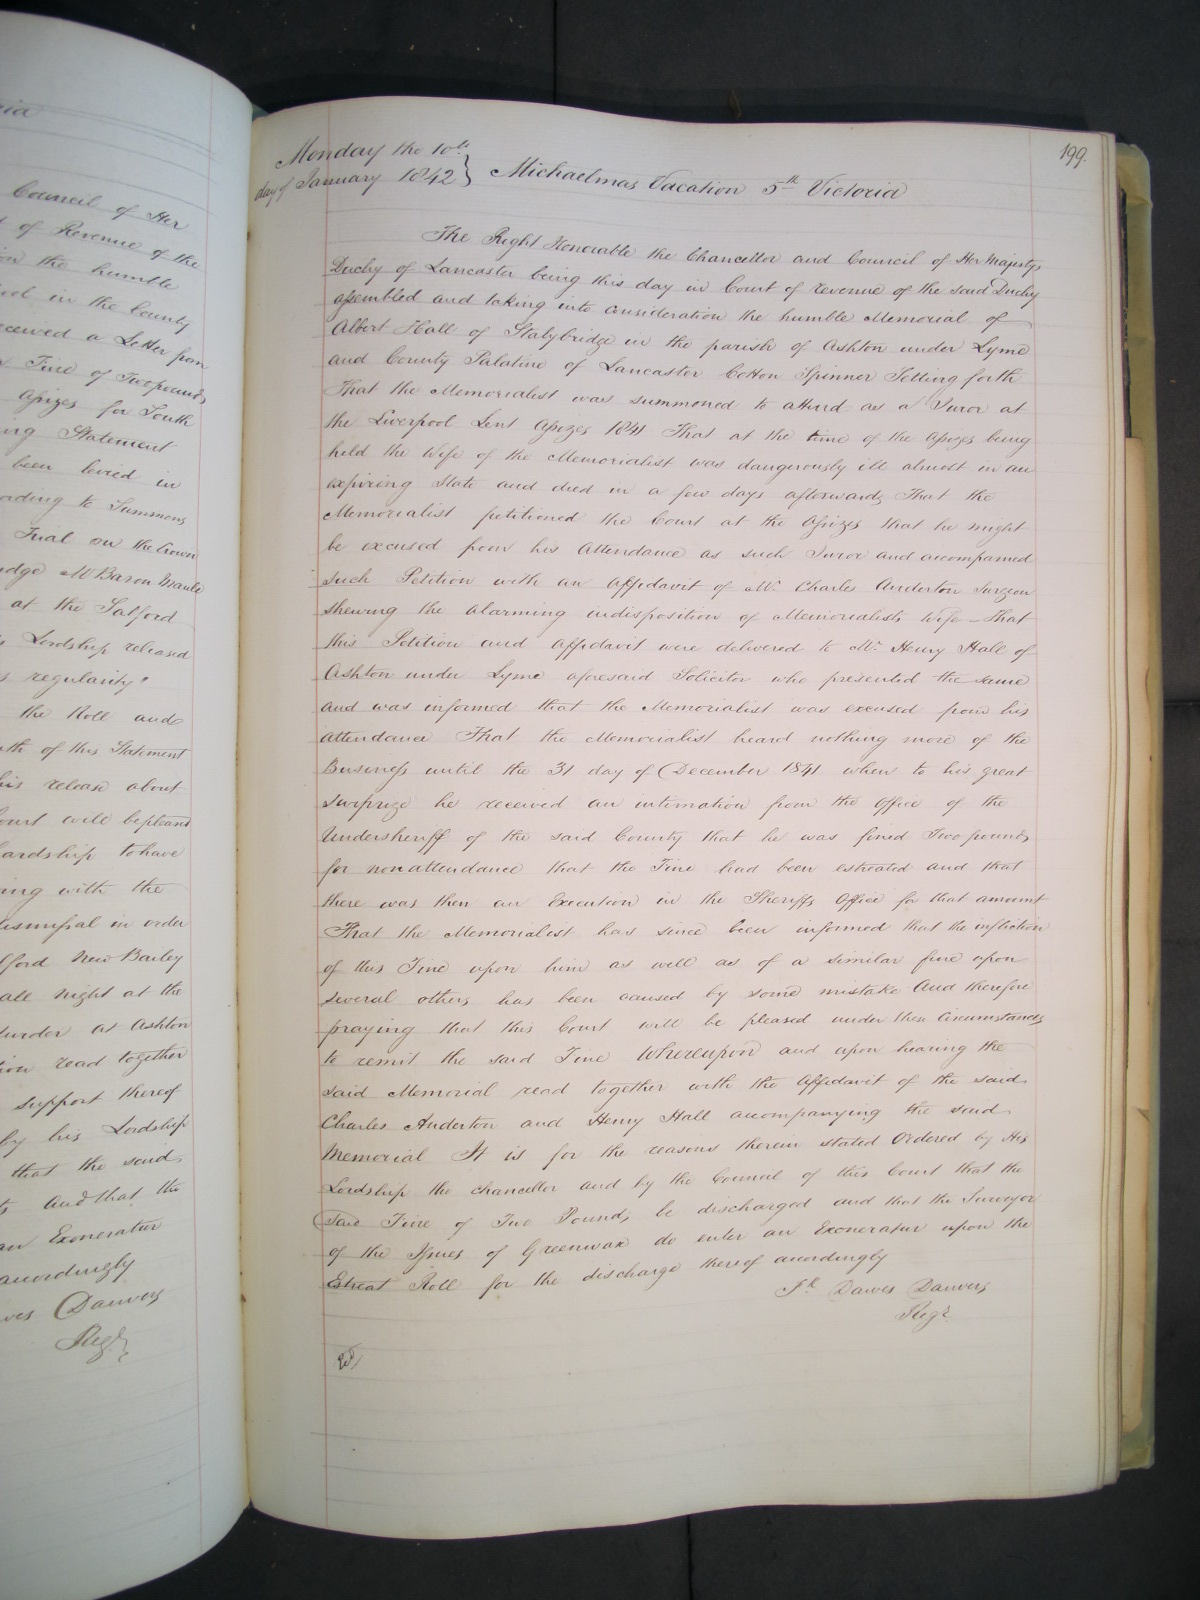 ria
Council of Her
of Revenue of the
on the humble
in the County
received a Letter from
Fine of Two pounds
Assizes for South
Statement
been levied in
according to Summons
Trial on the Crown
Judge Mr Baron Maule
at the Salford
Lordship released
regularity"
the Roll and
of this Statement
his release about
Court will be pleased
hardship to have
with the
dismissal in order
Salford New Bailey
all night at the
at Ashton
read together
support thereof
by his Lordship
that the said
and that the
an Exoneratur
accordingly
Dawes Danvers
Regr
199.
Monday the 10th
day of January 1842 } Michaelmas Vacation 5th Victoria
The Right Honorable the Chancellor and Council of Her Majestys
Duchy of Lancaster being this day in Court of revenue of the said Duchy
assembled and taking into consideration the humble Memorial of
Albert Hall of Stalybridge in the parish of Ashton under Lyme
and County Palatine of Lancaster Cotton Spinner Setting forth
That the Memorialist was summoned to attend as a Juror at
the Liverpool Lent Assizes 1841 That at the time of the Assizes being
held the Wife of the Memorialist was dangerously ill almost in an
expiring State and died in a few days afterwards That the
Memorialist petitioned the Court at the Assizes that he might
be excused from his Attendance as such Juror and accompanied
such Petition with an affidavit of Mr. Charles Anderton Surgeon
shewing the alarming indisposition of Memorialists Wife – That
this Petition and affidavit were delivered to Mr. Henry Hall of
Ashton under Lyme aforesaid Solicitor who presented the same
and was informed that the Memorialist was excused from his
attendance That the Memorialist heard nothing more of the
Business until the 31 day of December 1841 when to his great
surprize he received an intimation from the office of the
Undersheriff of the said County that he was fined Two pounds
for nonattendance that the Fine had been estreated and that
there was then an Execution in the Sheriffs Office for that amount
That the Memorialist has since been informed that the infliction
of this Fine upon him as well as of a similar fine upon
several others has been caused by some mistake And therefore
praying that this Court will be pleased under these Circumstances
to remit the said Fine Whereupon and upon hearing the
said Memorial read together with the Affidavit of the said
Charles Anderton and Henry Hall accompanying the said
Memorial It is for the reasons therein stated Ordered by His
Lordship the Chancellor and by the Council of this Court that the
said Fine of Two Pounds be discharged and that the Surveyor
of the Issues of Greenwax do enter an Exoneratur upon the
Estreat Roll for the discharge thereof accordingly
Fk Dawes Danvers
Regr